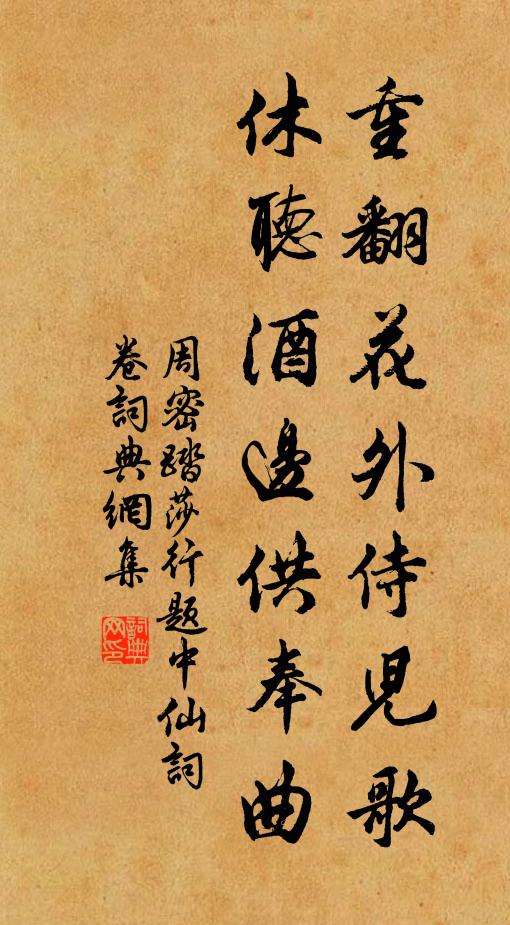 重翻花外侍兒歌
休聽酒邊供奉曲
周密踏莎行題中仙詞
卷詞典網集
詞典網印